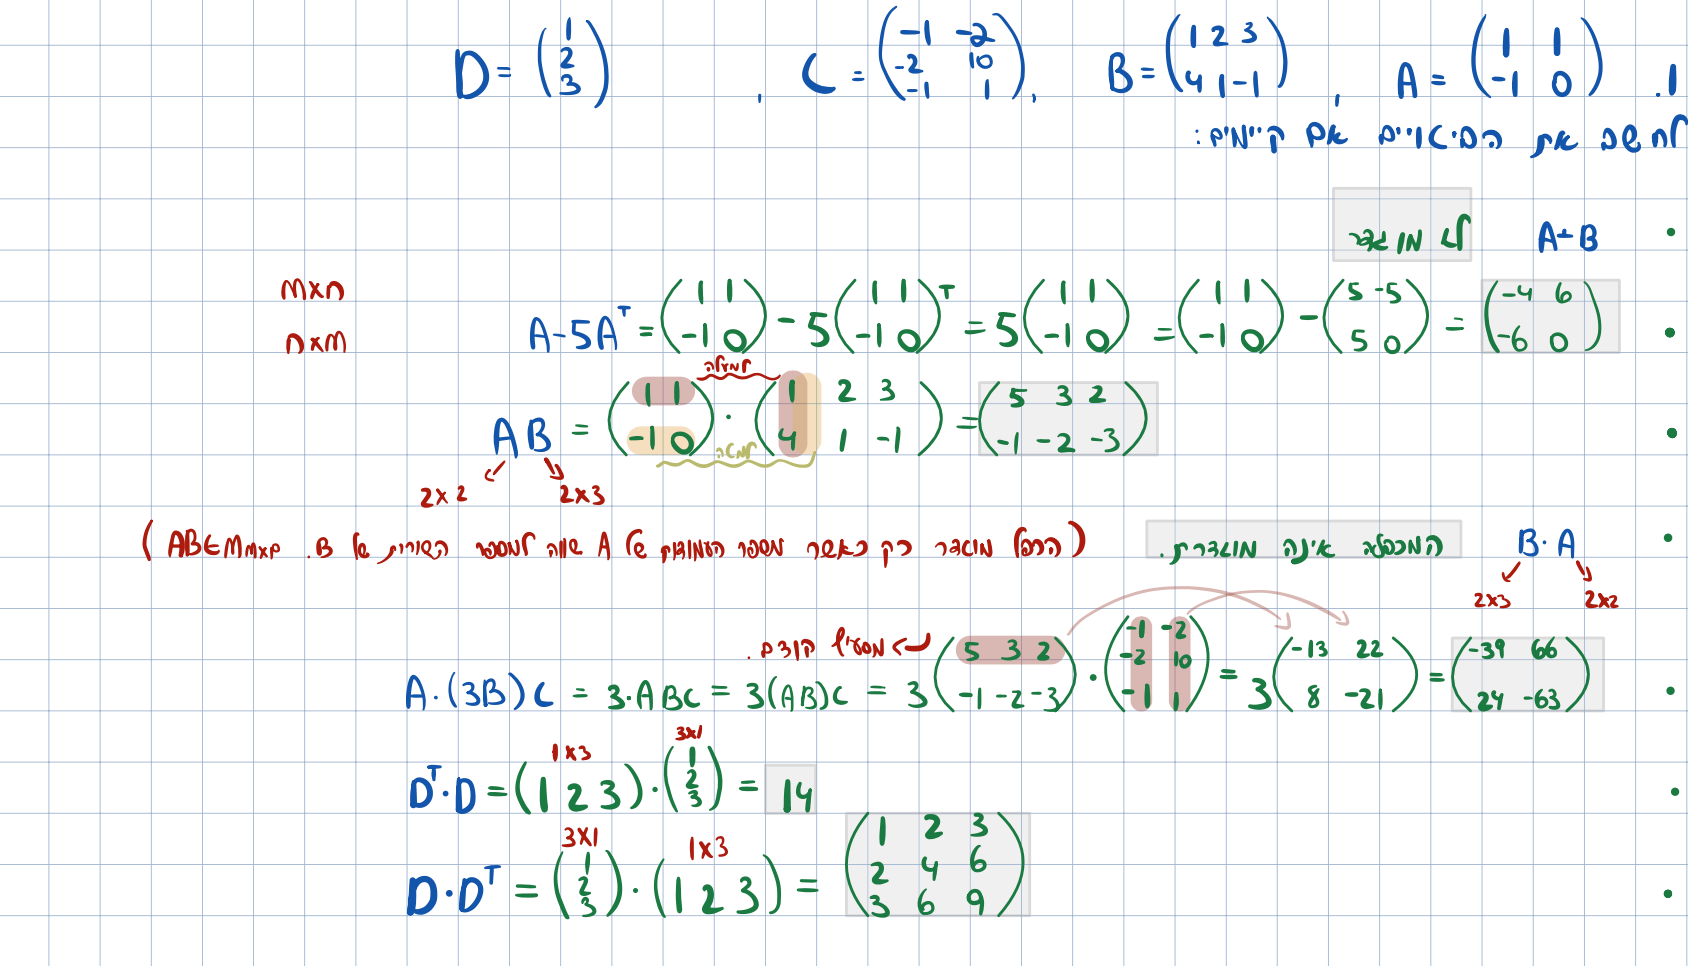 1. A = (1 1 / -1 0) , B = (1 2 3 / 4 1 -1) , C = (-1 -2 / -2 10 / -1 1) , D = (1 / 2 / 3)
לחשב את הביטויים אם קיימים:
• A+B לא מוגדר
• A-5A^T = (1 1 / -1 0) - 5(1 1 / -1 0)^T = 5(1 1 / -1 0) = (1 1 / -1 0) - (5 -5 / 5 0) = (-4 6 / -6 0)
m×n
n×m
למעלה
• AB = (1 1 / -1 0) · (1 2 3 / 4 1 -1) = (5 3 2 / -1 -2 -3)
למטה
2×2 2×3
• B·A המכפלה אינה מוגדרת. (הכפל מוגדר רק כאשר מספר העמודות של A שווה למספר השורות של B. AB∈M_{m×m})
2×3 2×2
מסעיף קודם.
• A·(3B)C = 3·ABC = 3(AB)C = 3(5 3 2 / -1 -2 -3) · (-1 -2 / -2 10 / -1 1) = 3(-13 22 / 8 -21) = (-39 66 / 24 -63)
1×3 3×1
• D^T·D = (1 2 3) · (1 / 2 / 3) = 14
3×1 1×3
• D·D^T = (1 / 2 / 3) · (1 2 3) = (1 2 3 / 2 4 6 / 3 6 9)